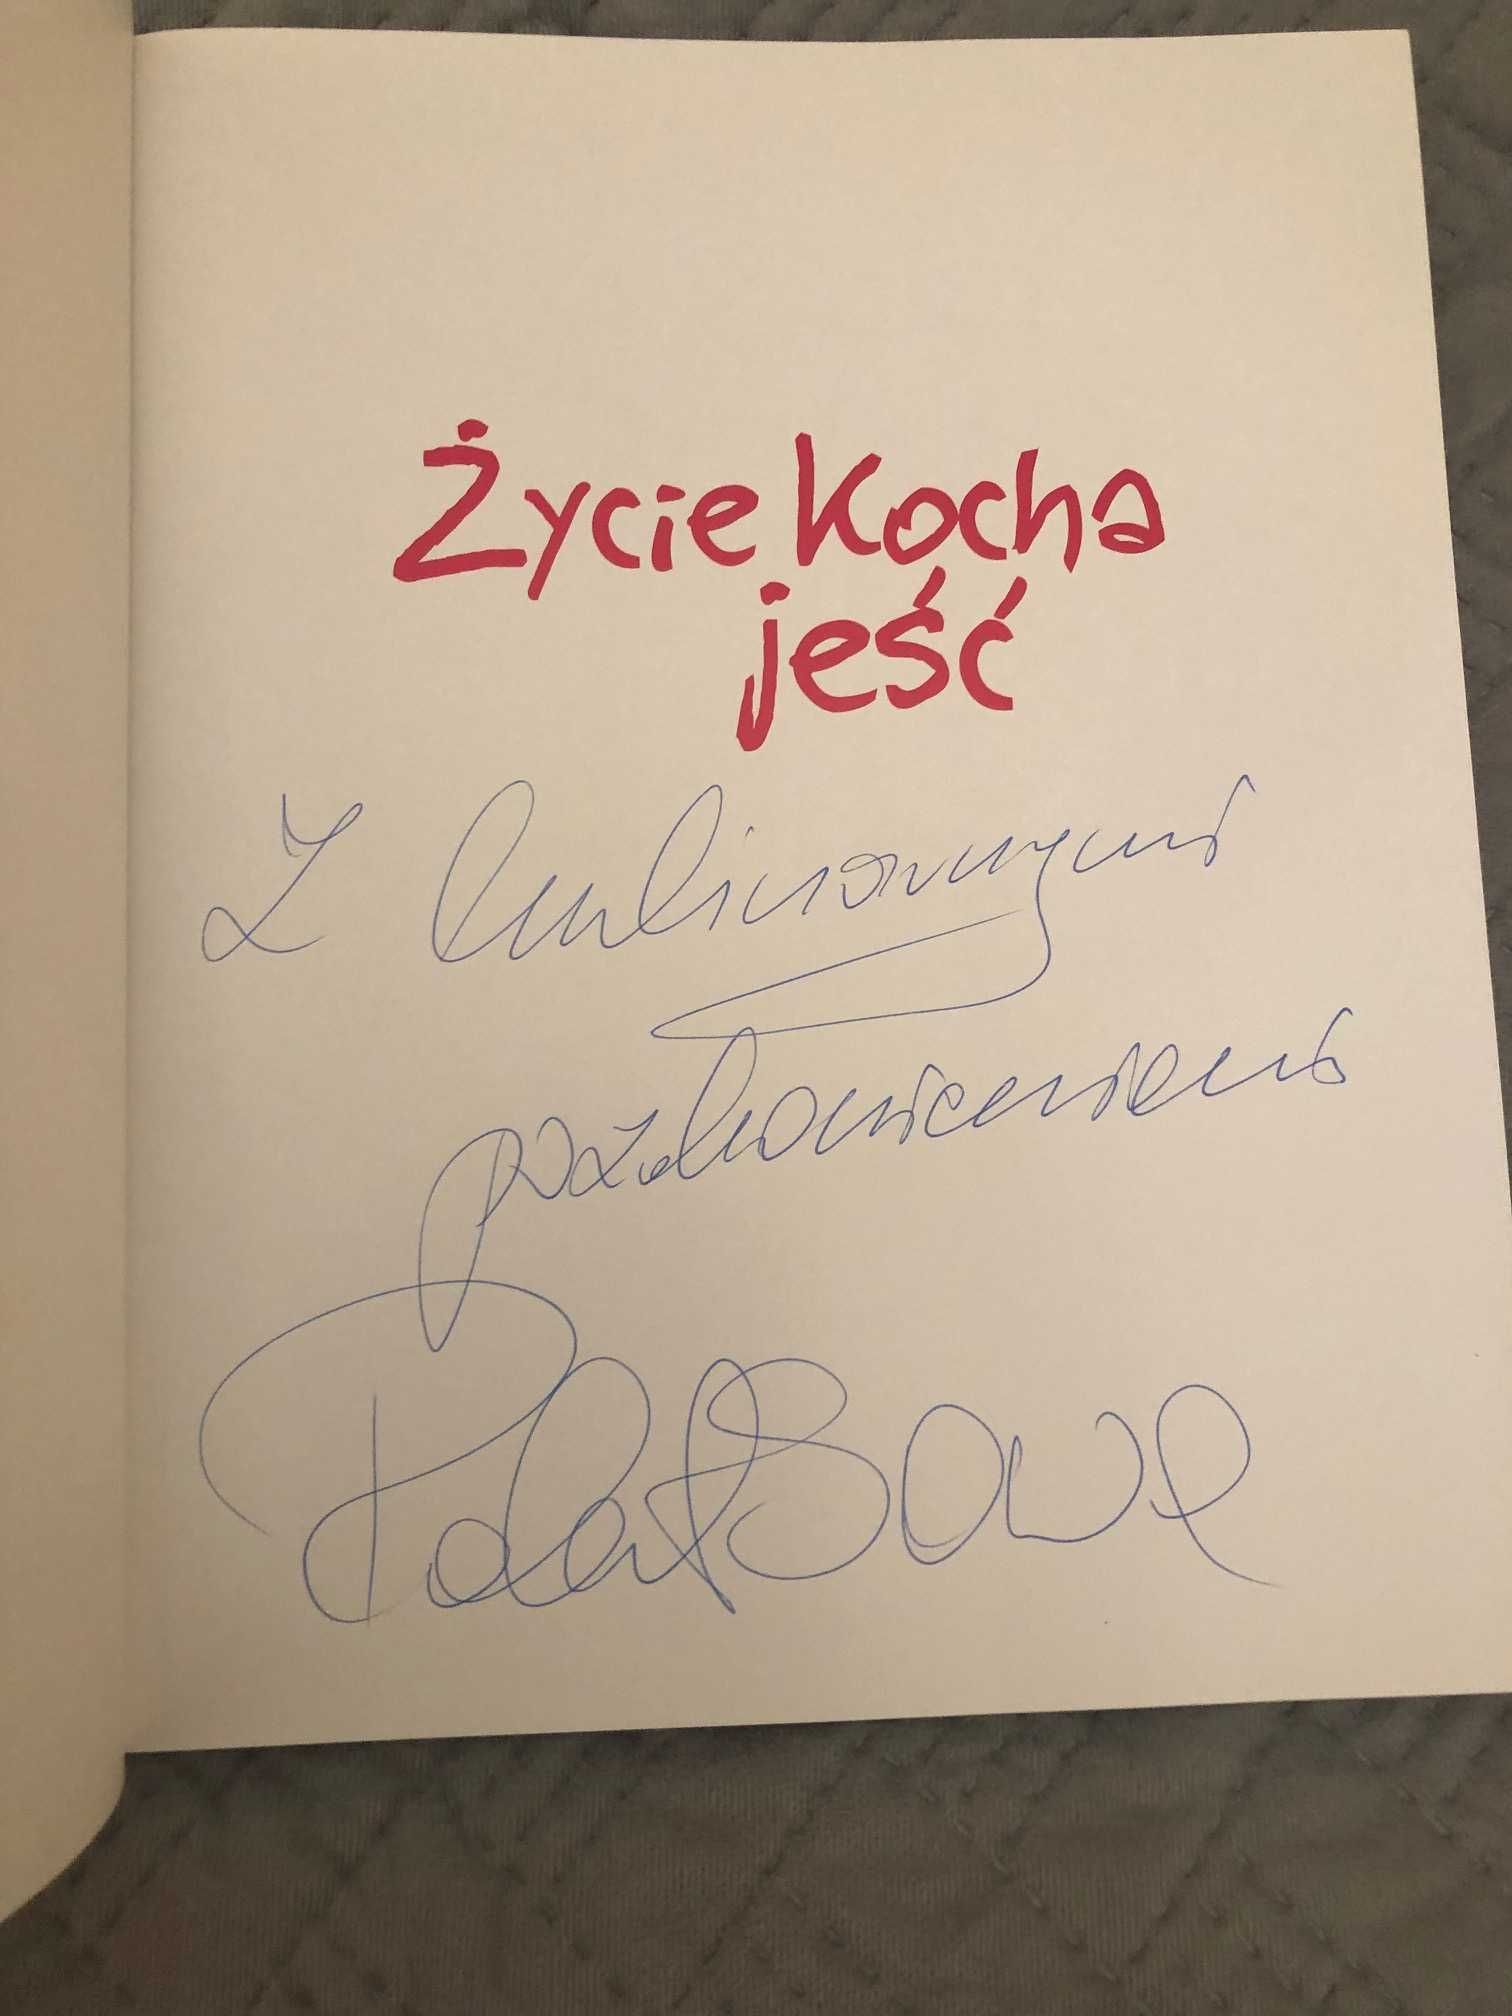 Życie Kocha
jeść
Z kulinarnymi
pozdrowieniami
Robert Sowa